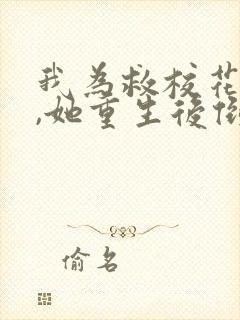 我為救校花
,她重生後
偷名